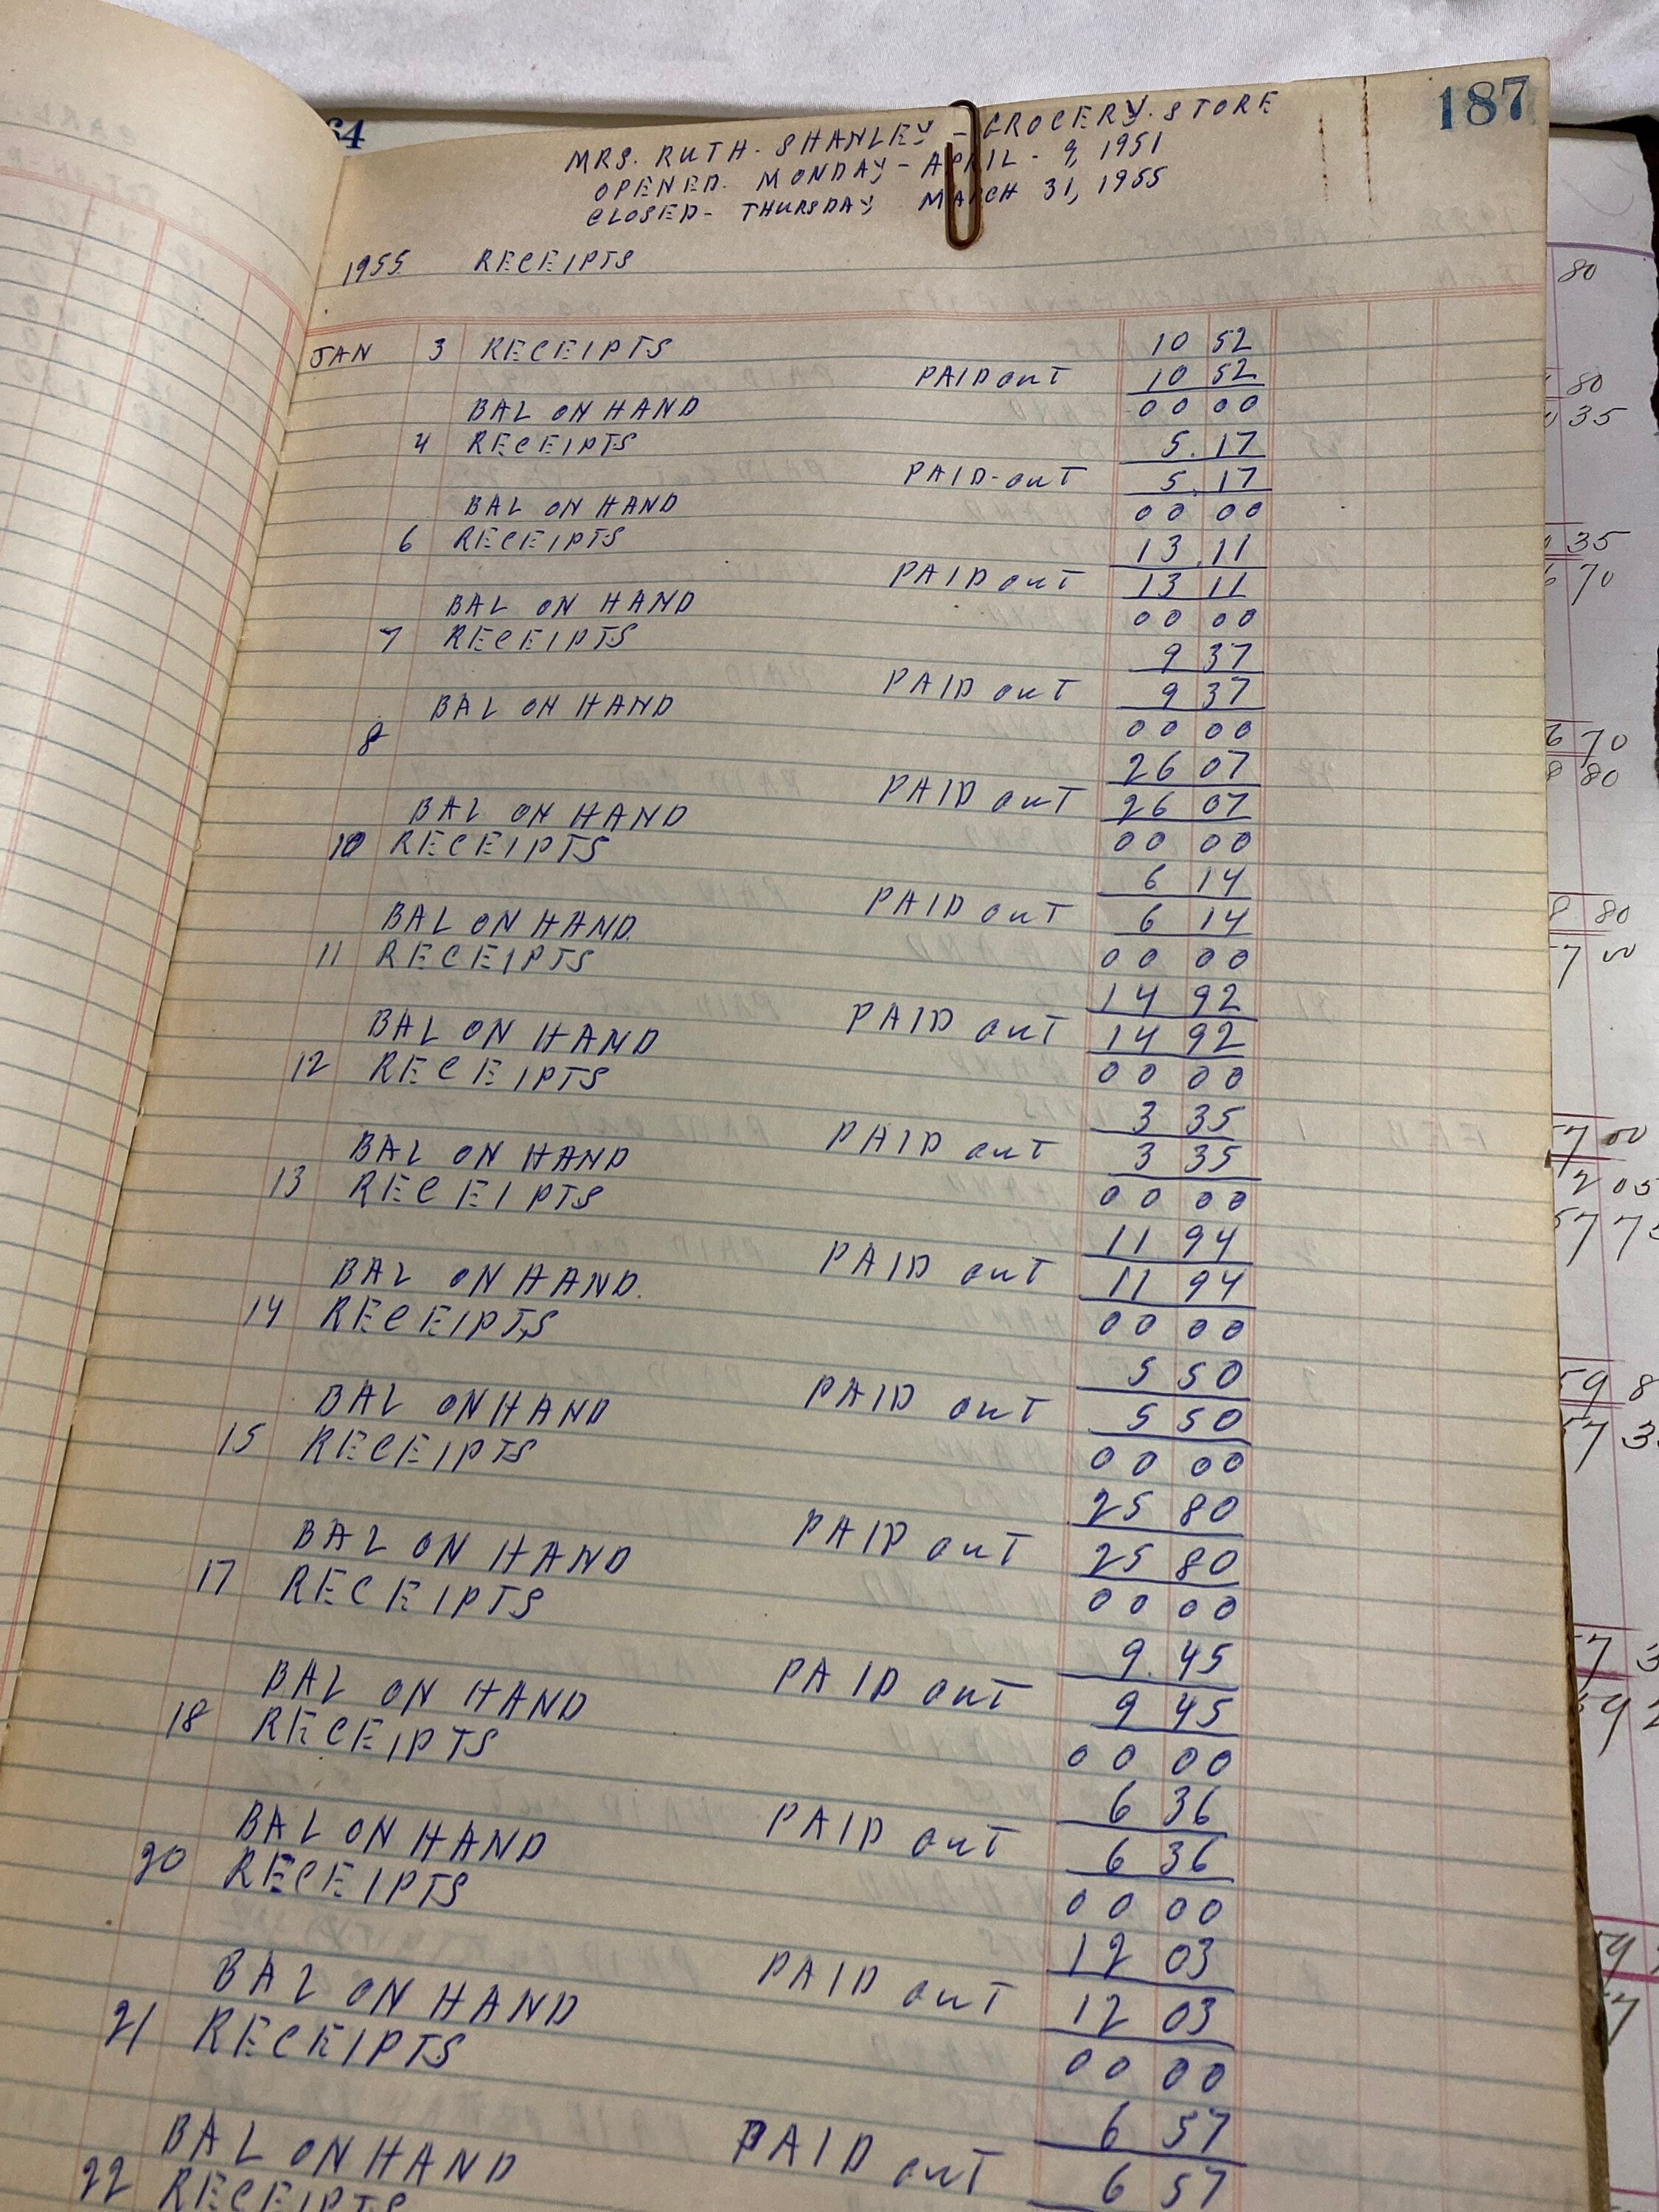 187
64
MRS. RUTH. SHANLEY - GROCERY. STORE
OPENED. MONDAY - APRIL - 9, 1951
CLOSED - THURSDAY MARCH 31, 1955
1955 RECEIPTS
JAN 3 RECEIPTS 10 52
PAID OUT 10 52
BAL ON HAND 00 00
4 RECEIPTS 5.17
PAID-OUT 5.17
BAL ON HAND 00 00
6 RECEIPTS 13.11
PAID OUT 13 11
BAL ON HAND 00 00
7 RECEIPTS 9 37
PAID OUT 9 37
BAL ON HAND 00 00
8 26 07
PAID OUT 26 07
BAL ON HAND 00 00
10 RECEIPTS 6 14
PAID OUT 6 14
BAL ON HAND. 00 00
11 RECEIPTS 14 92
PAID OUT 14 92
BAL ON HAND 00 00
12 RECEIPTS 3 35
PAID OUT 3 35
BAL ON HAND 00 00
13 RECEIPTS 11 94
PAID OUT 11 94
BAL ON HAND. 00 00
14 RECEIPTS 5 50
PAID OUT 5 50
BAL ON HAND 00 00
15 RECEIPTS 25 80
PAID OUT 25 80
BAL ON HAND 00 00
17 RECEIPTS 9.45
PAID OUT 9 45
BAL ON HAND 00 00
18 RECEIPTS 6 36
PAID OUT 6 36
BAL ON HAND 00 00
20 RECEIPTS 12 03
PAID OUT 12 03
BAL ON HAND 00 00
21 RECEIPTS 6 57
PAID OUT 6 57
BAL ON HAND
22 RECEIPTS
80
80
35
35
70
6 70
8 80
8 80
7 00
7 00
2 05